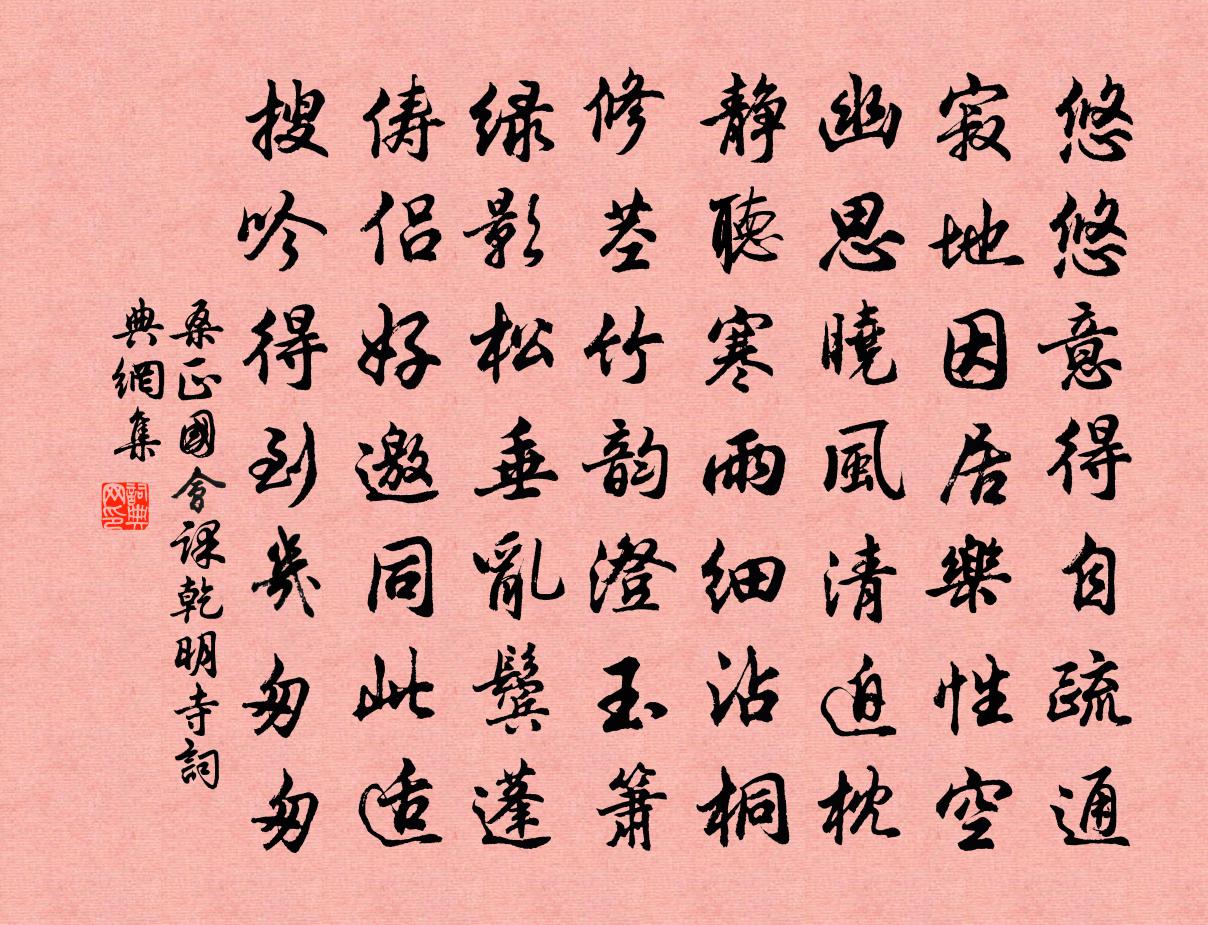 悠悠意得自疏通
寂地因居樂性空
幽思曉風清迫枕
静聽寒雨細沾桐
修茎竹韵澄玉簫
绿影松垂亂鬓蓬
俦侣好邀同此适
搜吟得到幾匆匆
桑正國會課乾明寺詞
典網集
詞典
网印